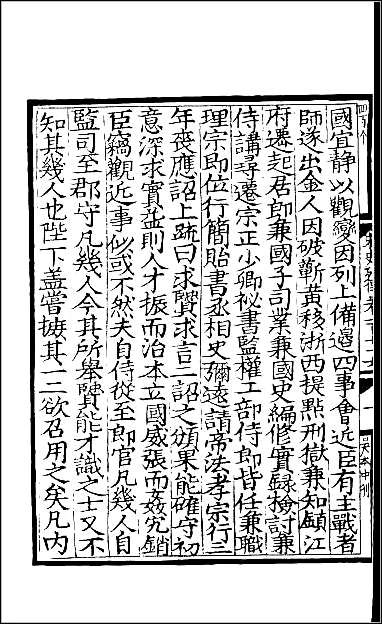 國宜靜以觀變因列上備邊四事會近臣有主戰者
師遂出金人因破蘄黃移浙西提點刑獄兼知鎮江
府遷起居郎兼國子司業兼國史編修實錄檢討兼
侍講尋遷宗正少卿祕書監權工部侍郎皆任兼職
理宗即位行簡貽書丞相史彌遠請帝法孝宗行三
年喪應詔上疏曰求賢求言二詔之頒果能確守初
意深求實益則人才振而治本立國威張而姦宄銷
臣竊觀近事似或不然夫自侍從至郎官凡幾人自
監司至郡守凡幾人今其所舉賢能才識之士又不
知其幾人也陛下盖嘗摭其一二欲召用之矣凡內